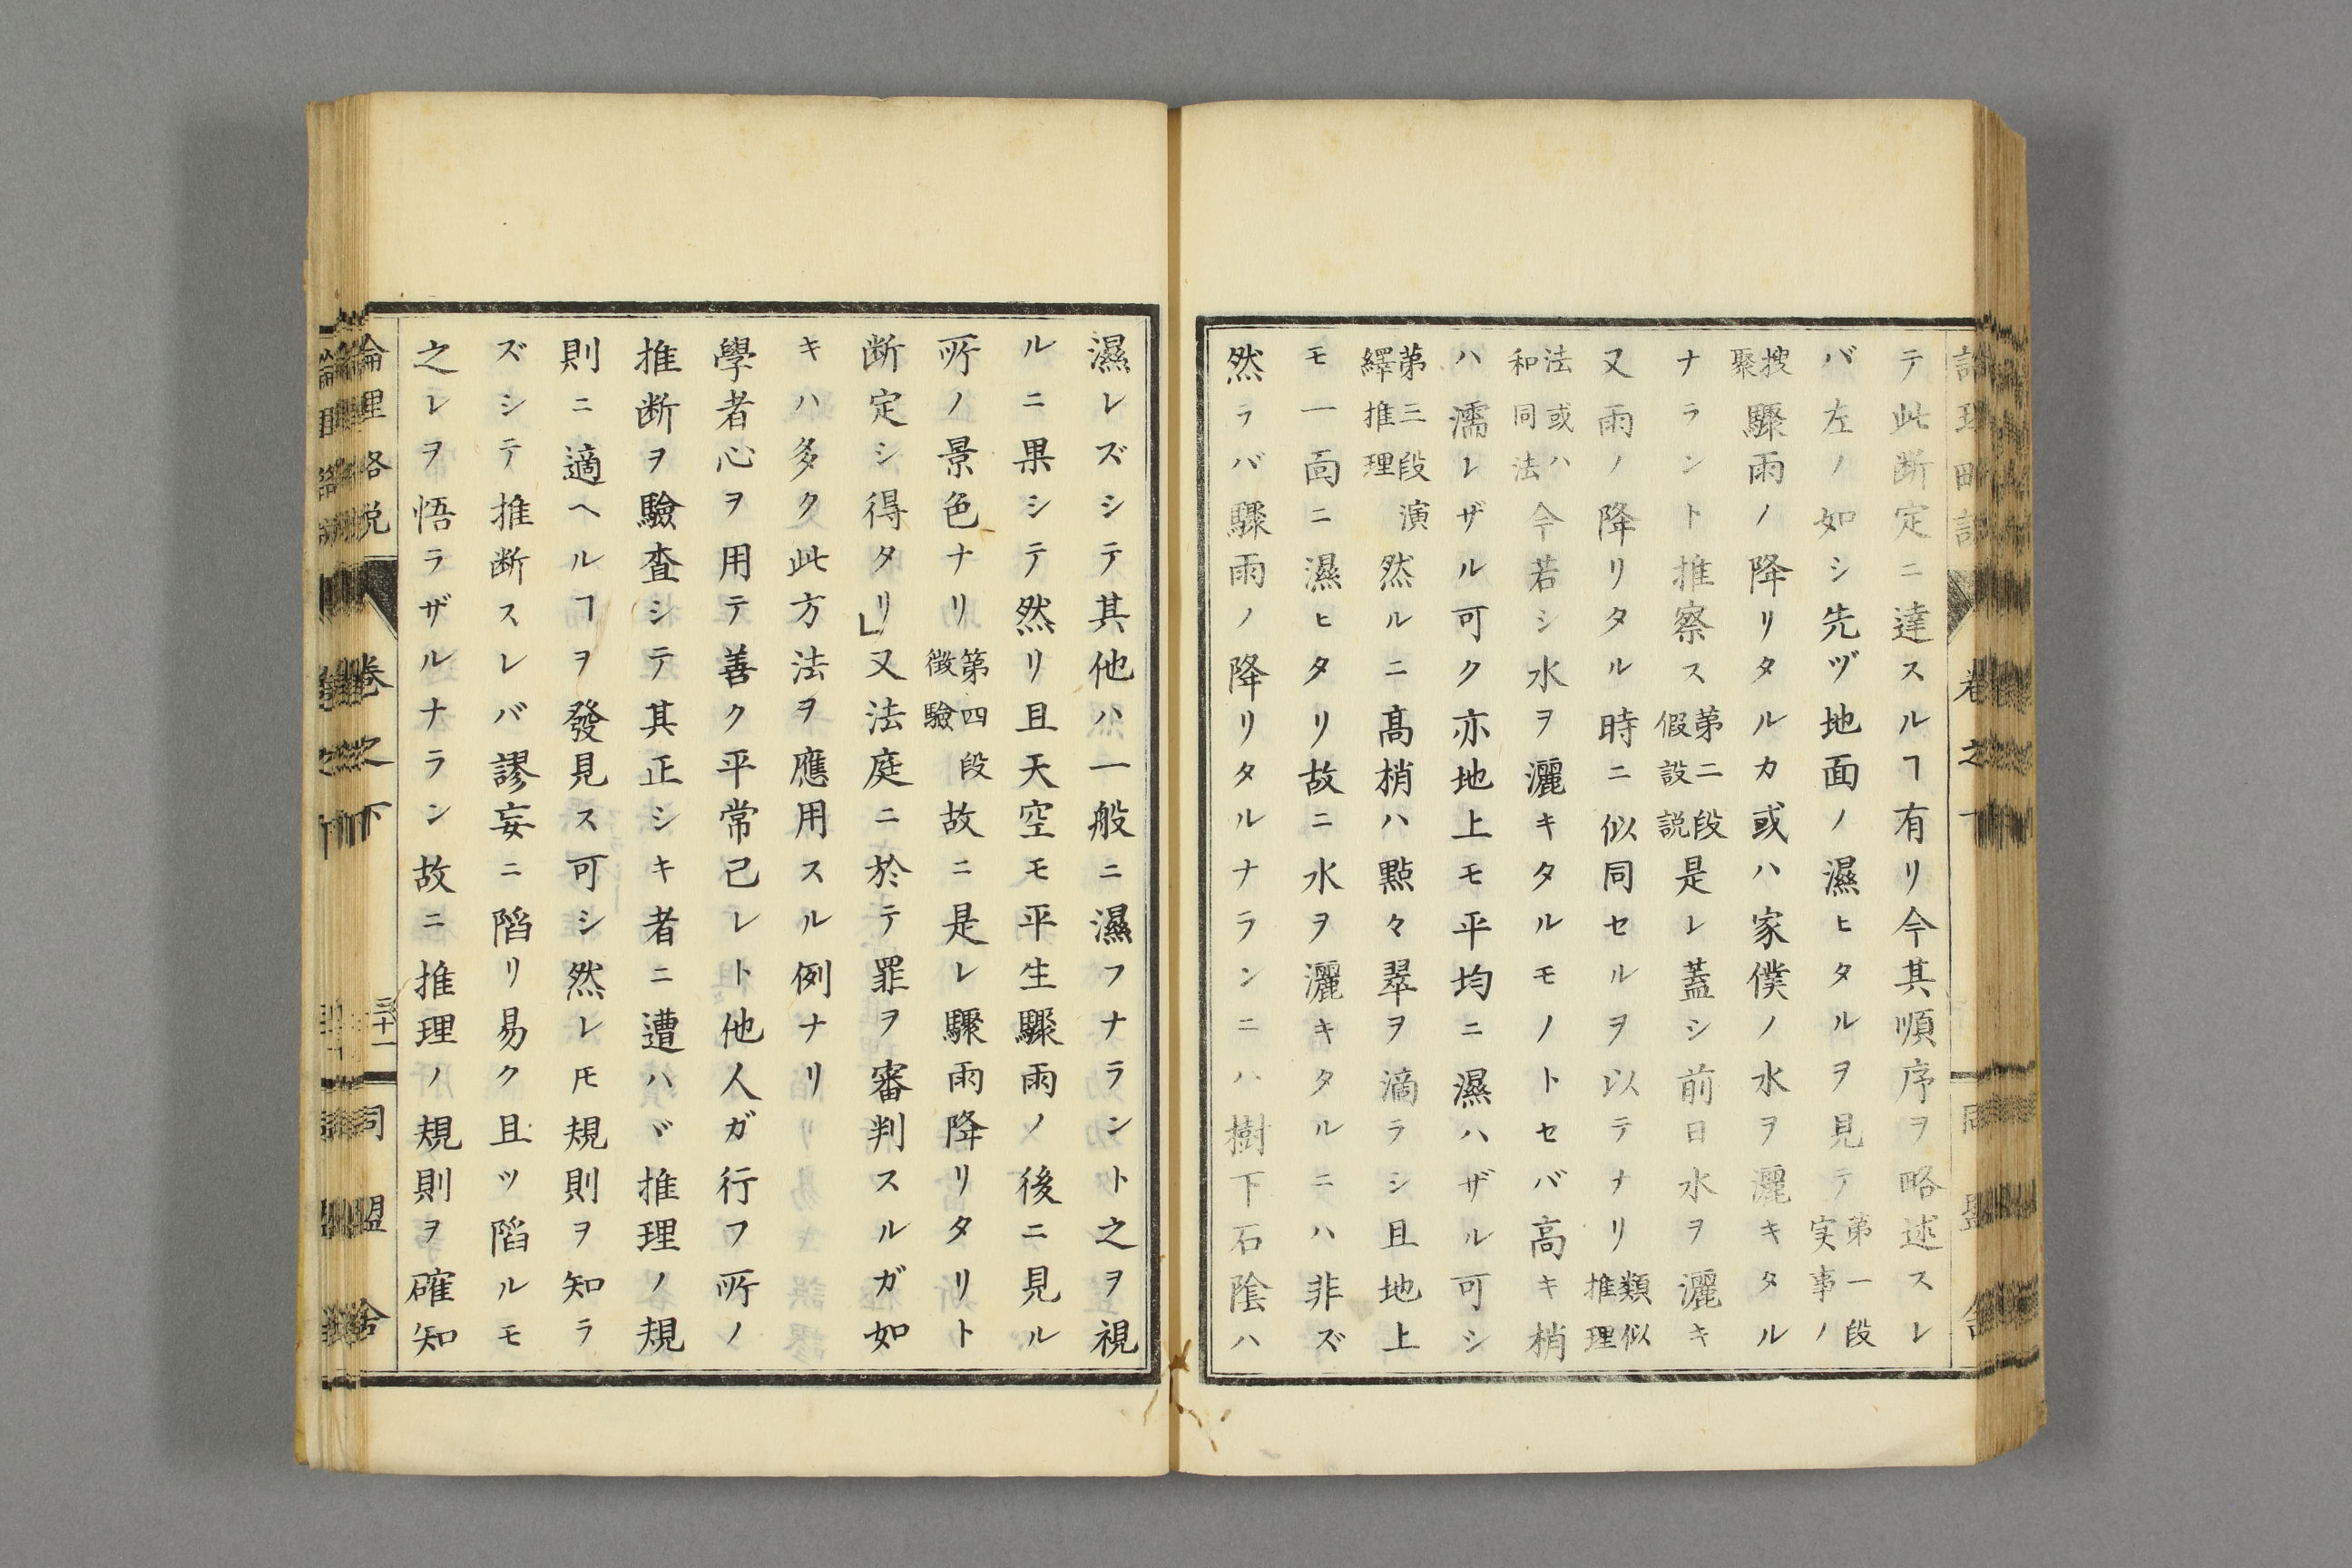 テ此断定ニ達スルヿ有リ今其順序ヲ略述スレ
バ左ノ如シ先ヅ地面ノ濕ヒタルヲ見テ第一段実事ノ
捜聚驟雨ノ降リタルカ或ハ家僕ノ水ヲ灑キタル
ナラント推察ス第二段假設説是レ蓋シ前日水ヲ灑キ
又雨ノ降リタル時ニ似同セルヲ以テナリ類似推理
法或ハ和同法今若シ水ヲ灑キタルモノトセバ高キ梢
ハ濡レザル可ク亦地上モ平均ニ濕ハザル可シ
第三段演繹推理然ルニ高梢ハ點々翠ヲ滴ラシ且地上
モ一面ニ濕ヒタリ故ニ水ヲ灑キタルニハ非ズ
然ラバ驟雨ノ降リタルナランニハ樹下石陰ハ
濕レズシテ其他ハ一般ニ濕フナラント之ヲ視
ルニ果シテ然リ且天空モ平生驟雨ノ後ニ見ル
所ノ景色ナリ第四段徴驗故ニ是レ驟雨降リタリト
断定シ得タリ」又法庭ニ於テ罪ヲ審判スルガ如
キハ多ク此方法ヲ應用スル例ナリ
學者心ヲ用テ善ク平常己レト他人ガ行フ所ノ
推断ヲ驗査シテ其正シキ者ニ遭ハヾ推理ノ規
則ニ適ヘルヿヲ發見ス可シ然レ𪜈規則ヲ知ラ
ズシテ推断スレバ謬妄ニ陷リ易ク且ツ陷ルモ
之レヲ悟ラザルナラン故ニ推理ノ規則ヲ確知
論理略説 卷之下 三十一 同盟舍